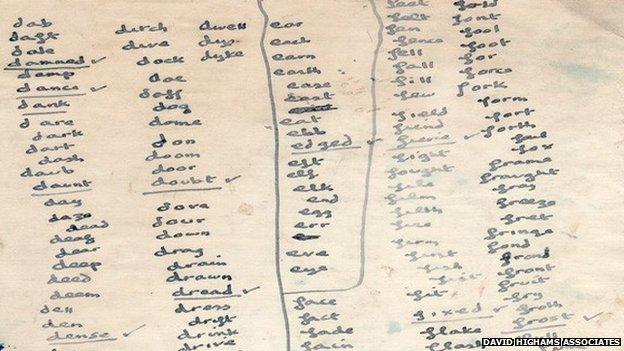 dab
daft
dale
damned ✓
damp
dance ✓
dank
dare
dark
dart
dash
daub
daunt
day
daze
dead
deaf
dear
deep
deed
deem
dell
den
dense ✓
ditch
dive
dock
doe
doff
dog
dome
don
doom
door
doubt ✓
dour
down
drag
drain
drawn
dread ✓
dress
drift
drink
drive
dwell
dyke
ear
each
earn
earth
ease
east
eat
ebb
edged ✓
eft
elf
elk
end
egg
err
eve
eye
face
fact
fade
fain
feet
felt
fen
fence
fell
fall
fill
few
field
fiend
✓
fight
fought
file
film
filth
fire
firm
fish
fist
fit
fixed ✓
flake
flash
fold
font
fool
foot
for
force
fork
form
fort
forth
foul
fox
frame
fraught
fray
freeze
fret
fringe
frond
front
fruit
fry
froth
frost ✓
DAVID HIGHAMS ASSOCIATES